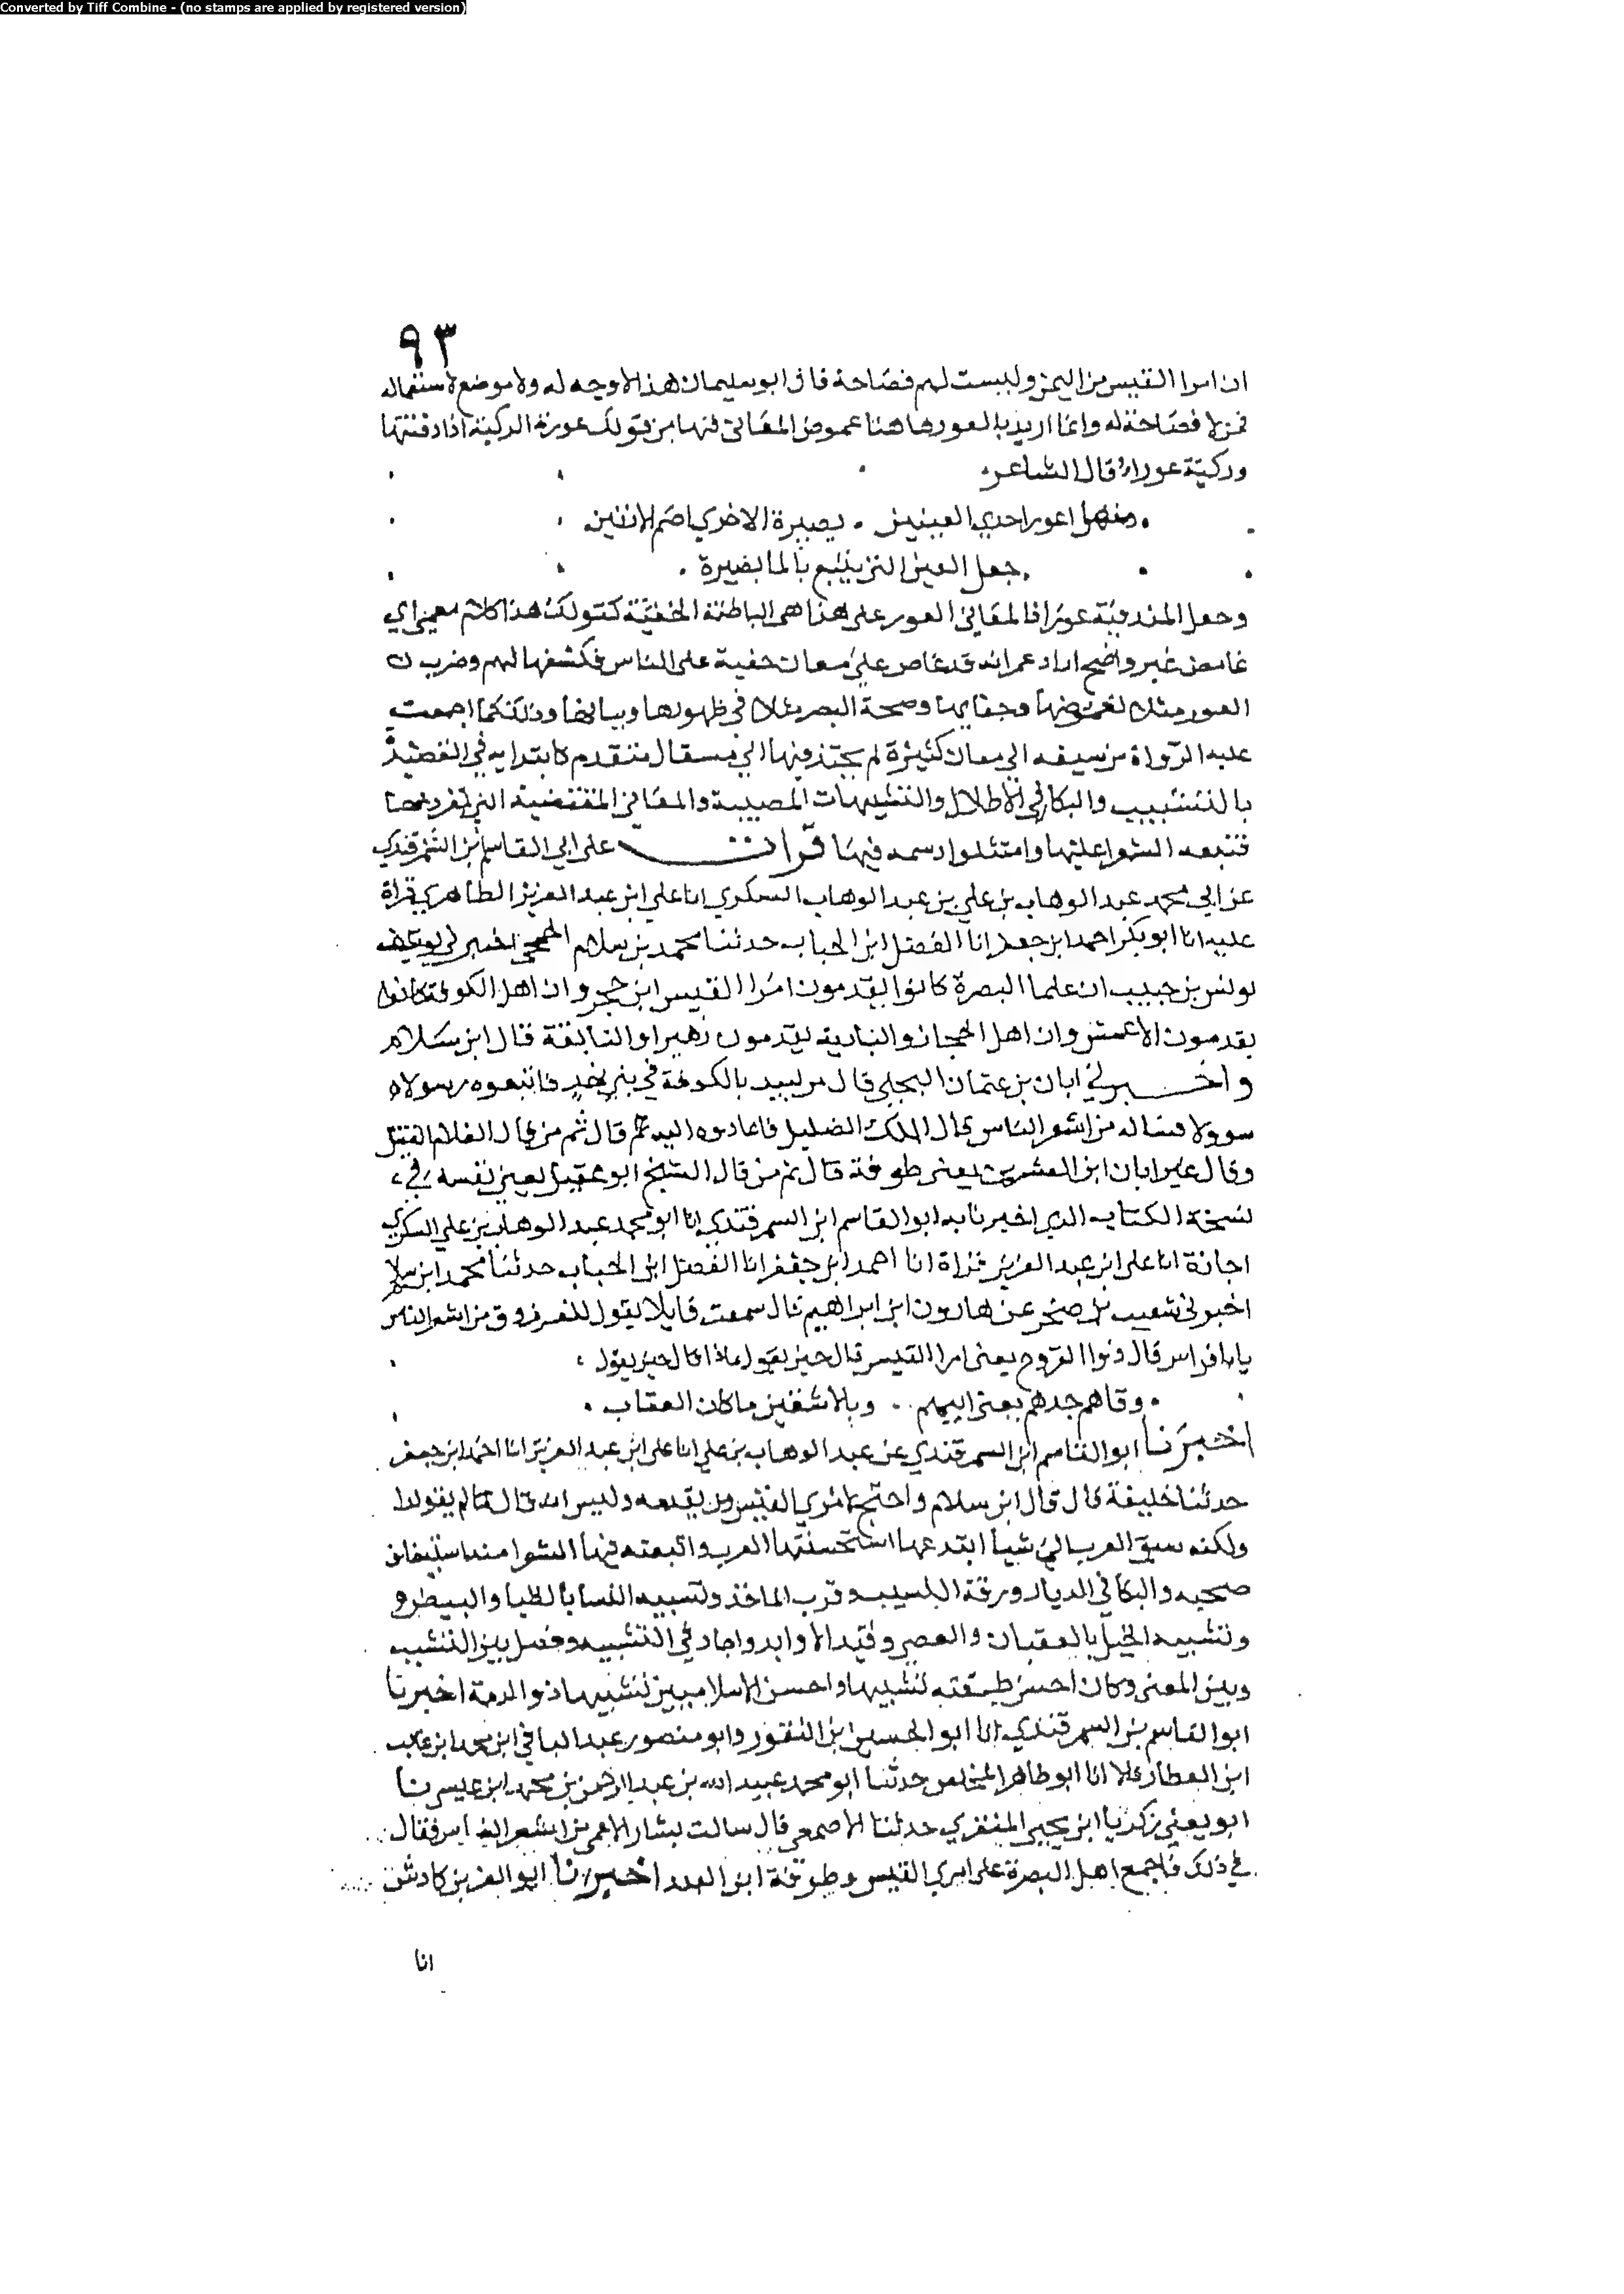 Converted by Tiff Combine - (no stamps are applied by registered version)
٩٣
ان امرا القيس من اليمن وليست لهم فصاحة قال ابو سليمان هذا لا وجه له ولا موضع لاستعماله
فمن لا فصاحة له وانما اريد بالعور هاهنا غموض المعاني فيها من قولك عورت الركية اذا دفنتها
وركية عوراء قال الشاعر
ومنهل اعور احدي العينين . بصيرة الاخري اصم الاذنين
جعل العين التي ينبع بالما بصيرة
وجعل المندفنة عورا فالمعاني العور على هذا هي الباطنة الخفية كقولك هذا كلام معمي اي
غامض غير واضح اراد عمر انه قد غاص علي معان خفية على الناس فكشفها لهم وضرب ن
العور مثلا لغموضها وخفايها وصحة البصر مثلا في ظهورها وبيانها وذلك كما اجمعت
عليه الرواة من سبقه الي معان كثيرة لم يحتذ فيها الي مسقال متقدم كابتدايه في القصيد
بالتشبيب والبكا في الاطلال والتشبيهات المصيبة والمعاني المقتضبة التي تفرد بها
فتبعه الشعرا عليها وامتثلوا رسمه فيها قرات على ابي القاسم ابن السمرقندي
عن ابي محمد عبد الوهاب بن علي بن عبد الوهاب السكري انا علي ابن عبد العزيز الطاهري قراة
عليه انا ابو بكر احمد ابن جعفر انا الفضل ابن الحباب حدثنا محمد بن سلام الجمحي اخبرني
يونس بن حبيب ان علما البصرة كانوا يقدمون امرا القيس ابن حجر وان اهل الكوفة كانوا
يقدمون الاعشى وان اهل الحجاز والبادية يقدمون زهيرا والنابغة قال ابن سلام
واخبرني ابان بن عثمان البجلي قال مر لبيد بالكوفة في بني نهد فاتبعوه رسولا
سوولا فساله من اشعر الناس قال الملك الضليل فاعادوه اليه ثم قال ثم من قال الغلام القتيل
وقال غير ابان ابن العشرين يعني طرفة قال ثم من قال الشيخ ابو عقيل يعني نفسه في
نسخة الكتاب الذي اخبرنا به ابو القاسم ابن السمرقندي انا ابو محمد عبد الوهاب بن علي السكري
اجازة انا علي ابن عبد العزيز قراة انا احمد ابن جعفر انا الفضل ابن الحباب حدثنا محمد ابن سلام
اخبرني شعيب بن صخر عن هارون ابن ابراهيم قال سمعت قايلا يقول للفرزدق من اشعر الناس
يابا فراس قال ذوا القروح يعني امرا القيس قال حين يقول ماذا قال حين يقول
وقاهم جدهم ببني ابيهم . وبالاشقين ما كان العقاب
اخبرنا ابو القاسم ابن السمرقندي عن عبد الوهاب بن علي انا علي ابن عبد العزيز انا احمد ابن جعفر
حدثنا خليفة قال قال ابن سلام واحتج لامري القيس من يقدمه وليس انه قال ما لم يقولوا
ولكنه سبق العرب الي شيا ابتدعها استحسنتها العرب واتبعته فيها الشعرا منه استيقاف
صحبه والبكا في الديار ورقة النسيب وقرب الماخذ وتشبيه النسا بالظبا والبيض و
وتشبيه الخيل بالعقبان والعصي وقيد الاوابد واجاد في التشبيه وفصل بين النشبيب
وبين المعنى وكان احسن طبقته تشبيها واحسن الاسلاميين تشبيها ذو الرمة اخبرنا
ابو القاسم بن السمرقندي انا ابو الحسين ابن النقور وابو منصور عبد الباقي ابن محمد ابن غالب
ابن العطار قالا انا ابو طاهر المخلص حدثنا ابو محمد عبيد الله بن عبد الرحمن بن محمد ابن عيسى نا
ابو يعلي زكريا ابن يحيى المنقري حدثنا الاصمعي قال سالت بشار الاعمى من اشعر الناس فقال
في ذلك فاجمع اهل البصرة على امري القيس وطرفة ابن العبد اخبرنا ابو العز بن كادش
انا